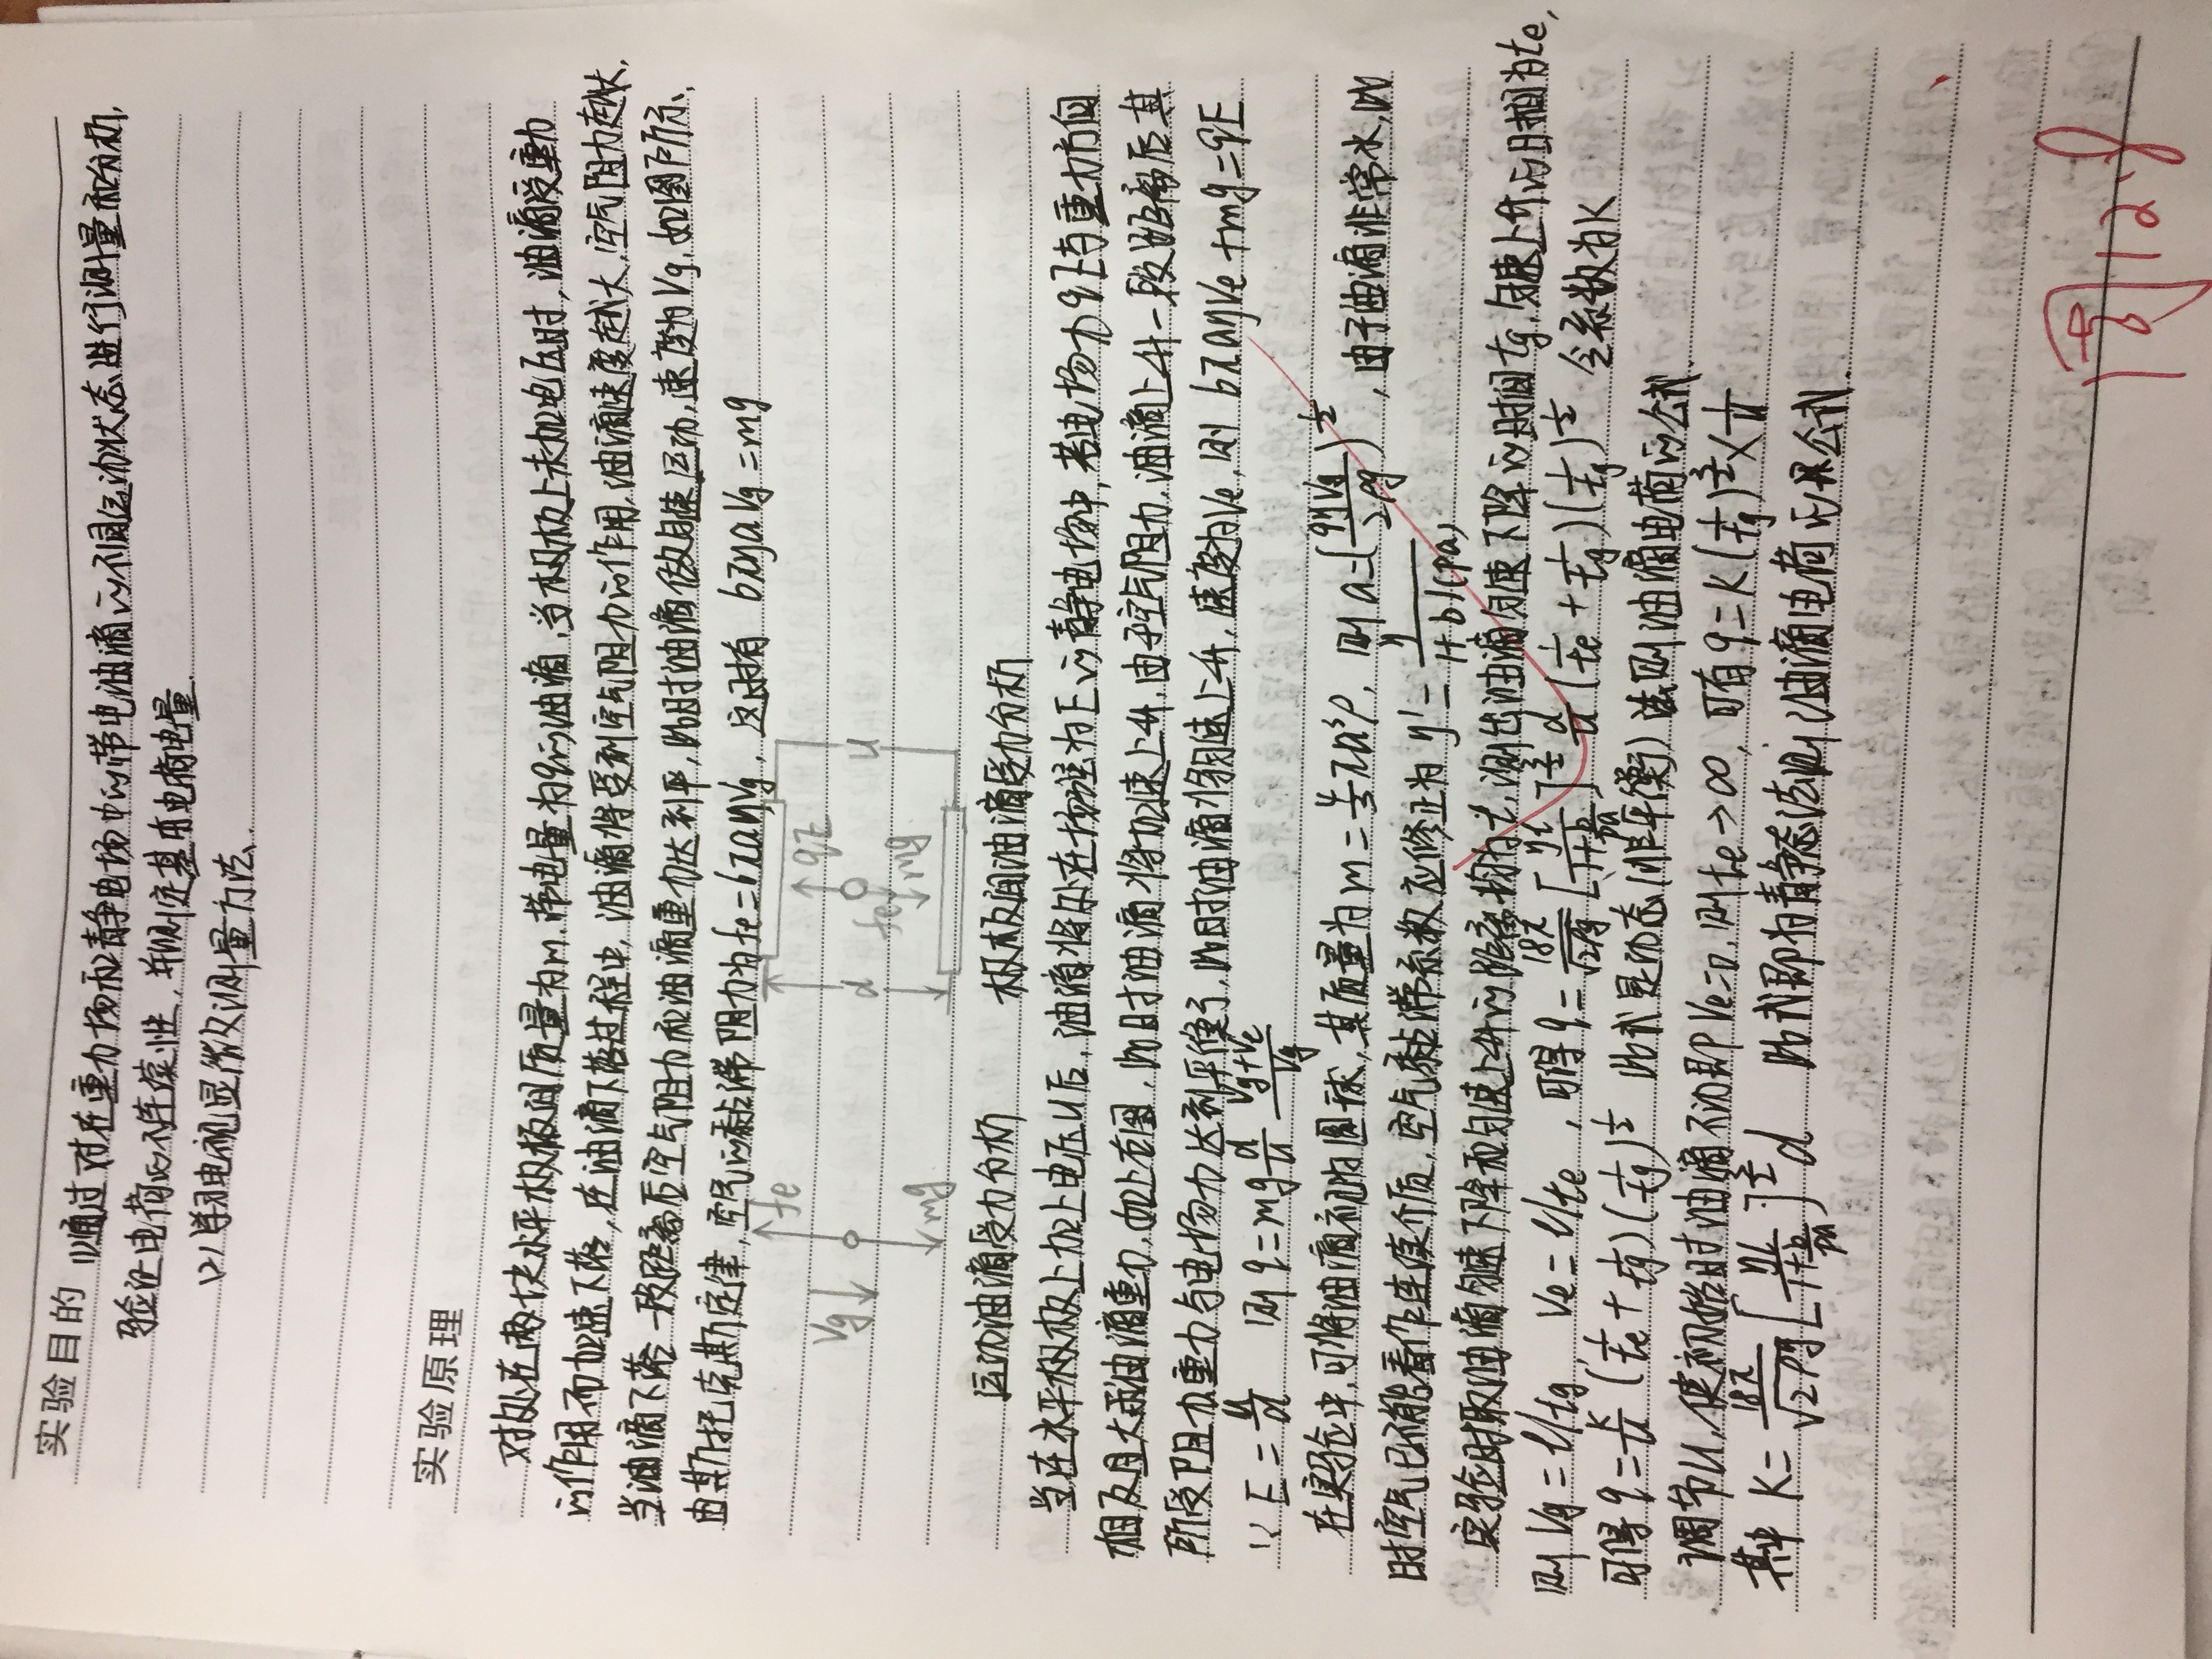 实验目的 (1)通过对在重力场和静电场中的带电油滴的不同运动状态进行测量和分析,
验证电荷的不连续性,并测定基本电荷电量.
(2)学习电视显微测量方法.
实验原理
对处在两块水平极板间质量为m.带电量为q的油滴,当极板上未加电压时,油滴受重力
的作用而加速下落,在油滴下落过程中,油滴将受到空气阻力的作用.油滴速度越大,空气阻力越大.
当油滴下落一段距离后空气阻力和油滴重力达到平,此时油滴做匀速运动,速度为Vg,如图所示、
由斯托克斯定律,空气的黏滞阻力为fe=6πaηVg,这时有 6πηaVg=mg
fe qE
Vg d U
fe
mg mg
运动油滴受力分析 极板间油滴受力分析
当在水平极板上加上电压U后,油滴将处在场强为E的静电场中,若电场力qE与重力方向
相反且大于油滴重力,如上右图,此时油滴将加速上升.由于空气阻力,油滴上升一段距离后其
所受阻力重力与电场力达到平衡了,此时油滴将匀速上升,速度为Ve,则 6πaηVe+mg=qE
∵ E=U/d 则 q=mg d/U (Vg+Ve)/Vg
在实验中,可将油滴视为圆球,其质量为m=4/3πa³ρ, 则 a=(9ηVg/2ρg)^1/2,由于油滴非常小,此
时空气已不能看作连续介质,空气黏滞系数应修正为 η'=η/(1+b/(pa))
实验时取油滴匀速下降和匀速上升的距离均为l,测出油滴匀速下降的时间tg,匀速上升的时间为te,
则 Vg=l/tg, Ve=l/te ,可得 q=18π/√2ρg [ηl/(1+b/pa)]^3/2 d/U (1/te+1/tg)(1/tg)^1/2 令系数为K
可得 q=K/U (1/te+1/tg)(1/tg)^1/2 此式是动态(非平衡)法测油滴电荷的公式.
调节U,使初始时油滴不动即Ve=0,则te→∞,可有 q=K(1/tg)^3/2×1/U
其中 K=18π/√2ρg [ηl/(1+b/pa)]^3/2 d 此式即为静态法测油滴电荷的公式.
周12.8